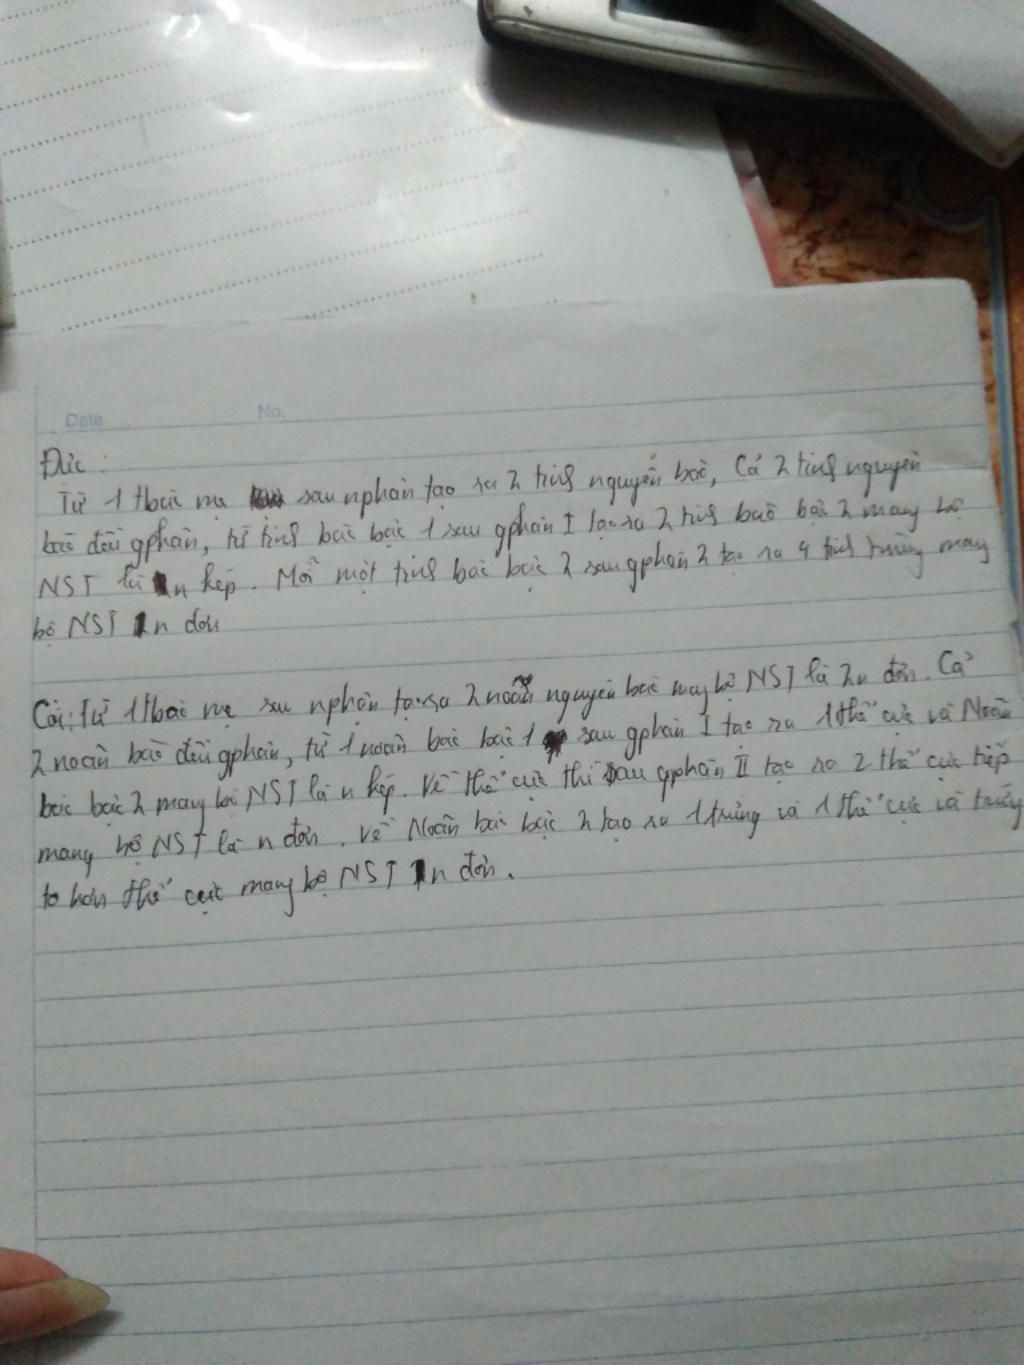 Date No.
Đực:
Từ 1 tbào mẹ sau nphân tạo ra 2 tinh nguyên bào, Cả 2 tinh nguyên
bào đều gphân, từ tinh bào bậc 1 sau gphân I tạo ra 2 tinh bào bậc 2 mang bộ
NST là n kép. Mỗi một tinh bào bậc 2 sau gphân 2 tạo ra 4 tinh trùng mang
bộ NST 1n đơn
Cái: Từ 1 tbào mẹ sau nphân tạo ra 2 noãn nguyên bào mang bộ NST là 2n đơn. Cả
2 noãn bào đều gphân, từ 1 noãn bào bậc 1 sau gphân I tạo ra 1 thể cực và Noãn
bào bậc 2 mang bộ NST là n kép. Về thể cực thì sau gphân II tạo ra 2 thể cực tiếp
mang bộ NST là n đơn. Về Noãn bào bậc 2 tạo ra 1 trứng và 1 thể cực và trứng
to hơn thể cực mang bộ NST 1n đơn.